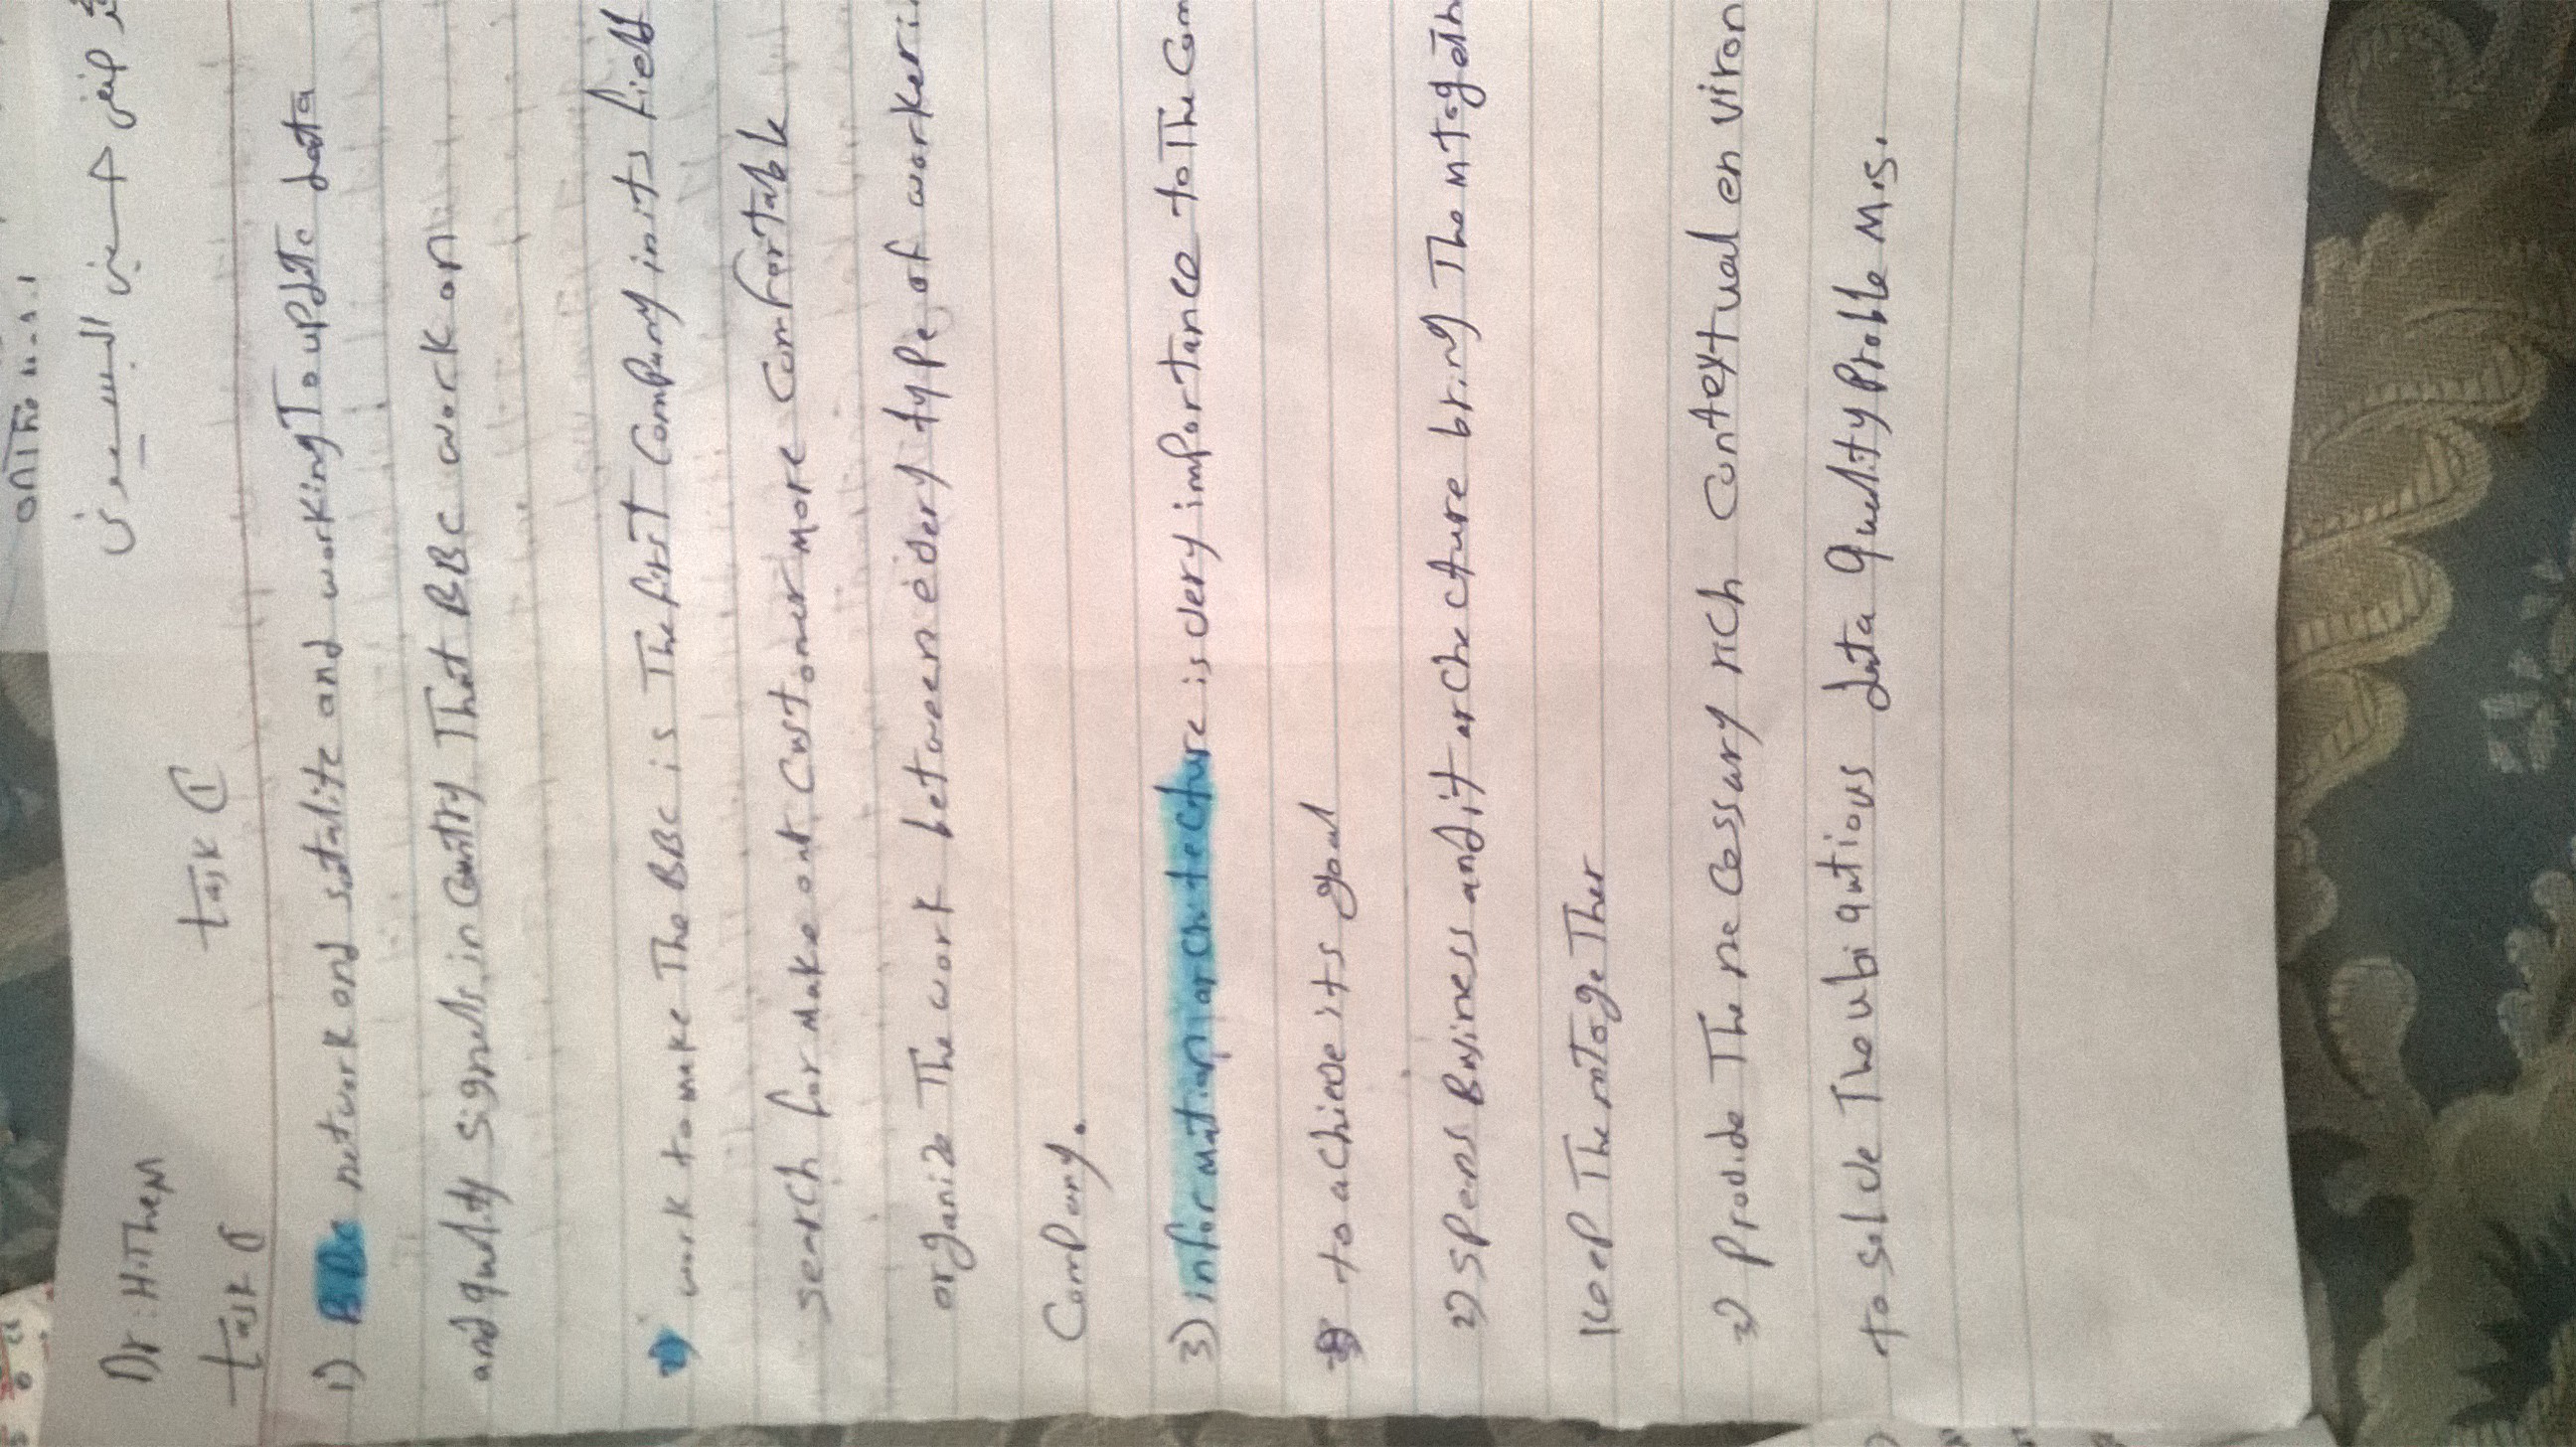 on The
حسيني البسيوني
Dr: HiThem
task ①
task
1) BBc network and satalite and working To update data
and quality signals in Country That BBc work on
2) work to make The BBc is The first Company in its field
search for make out Customer more Comfortable
organize The work between every type of worker
Company.
3) information architecture is very importance to The Com
to achieve its goal
2) spens Business and it archecture bring Them togeth
Keep Them Together
3) Provide The necessary rich Contextual environ
to solve The ubiqutious data Quality Problem.s.